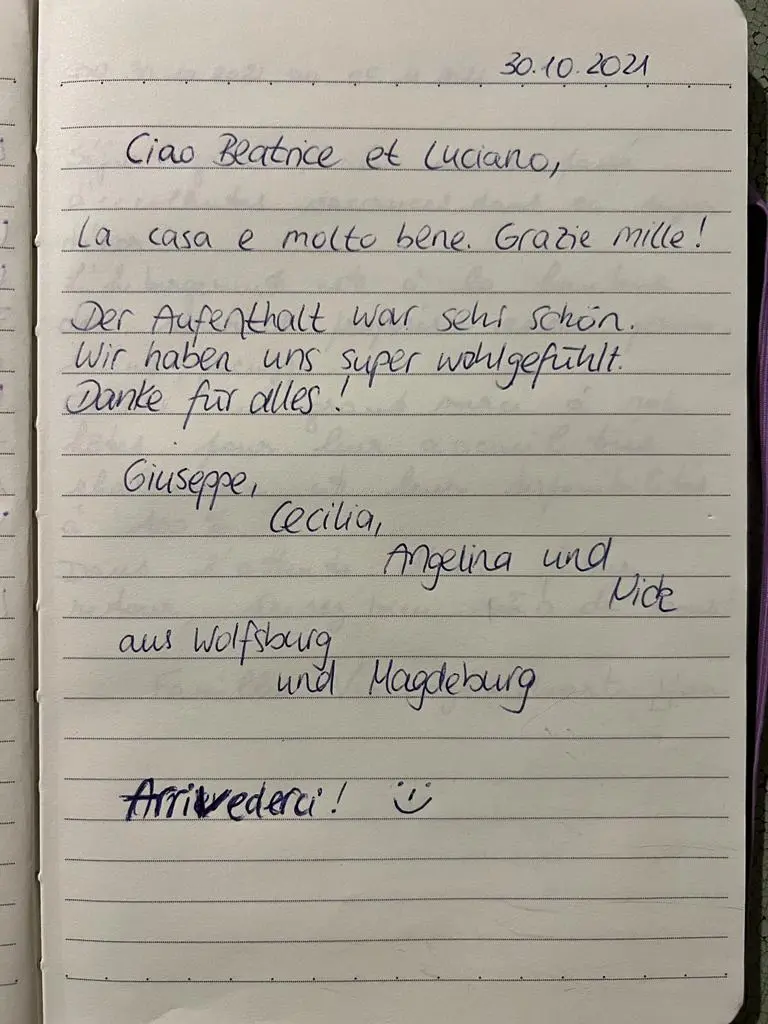 30.10.2021
Ciao Beatrice et Luciano,
La casa e molto bene. Grazie mille!
Der Aufenthalt war sehr schön.
Wir haben uns super wohlgefühlt.
Danke für alles!
Giuseppe,
Cecilia,
Angelina und
Nick
aus Wolfsburg
und Magdeburg
Arrivederci! :)